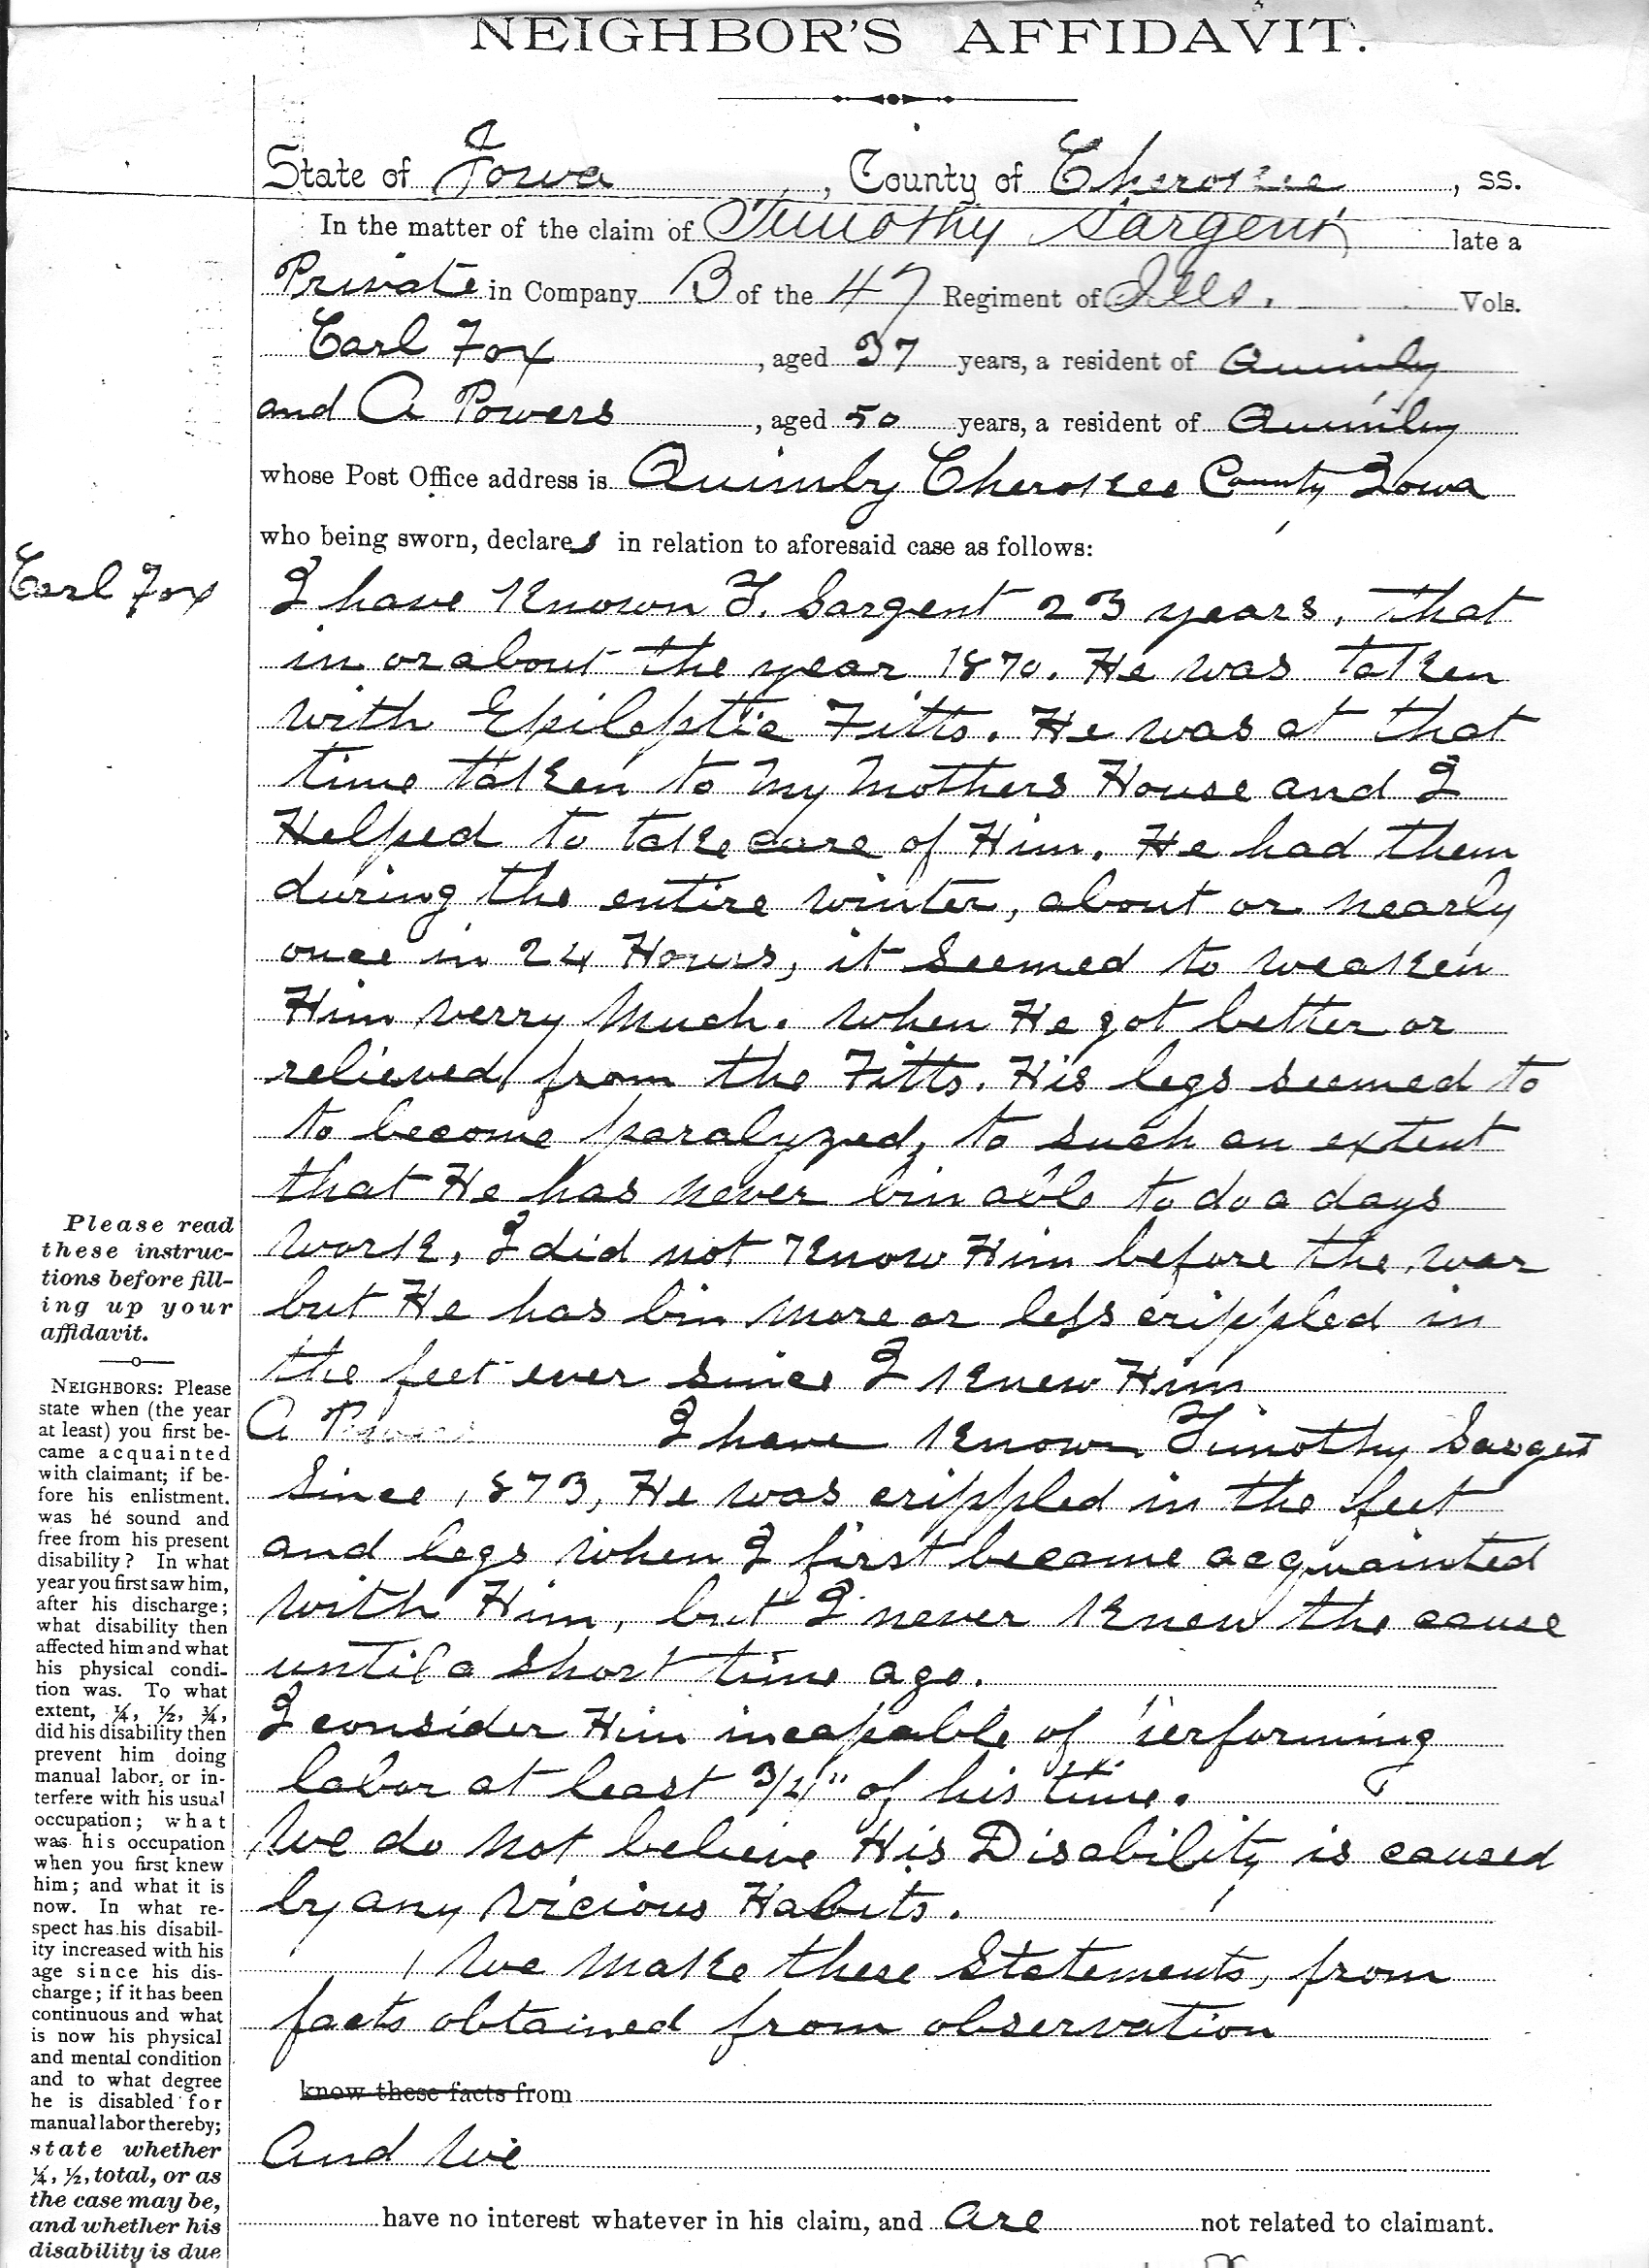 NEIGHBOR'S AFFIDAVIT.
State of Iowa, County of Cherokee, ss.
In the matter of the claim of Timothy Sargent late a
Private in Company B of the 47 Regiment of Ills. Vols.
Carl Fox, aged 37 years, a resident of Quimby
and A Powers, aged 50 years, a resident of Quimby
whose Post Office address is Quimby Cherokee County Iowa
who being sworn, declares in relation to aforesaid case as follows:
Carl Fox
I have Known T. Sargent 23 years, that
in or about the year 1870. He was taken
with Epileptic Fitts. He was at that
time taken to My Mothers House and I
Helped to take care of Him. He had them
during the entire winter, about or nearly
once in 24 Hours, it seemed to weaken
Him verry Much. when He got better or
relieved from the Fitts. His legs seemed to
to become paralyzed, to such an extent
that He has never bin able to do a days
work, I did not Know Him before the war
but He has bin More or less crippled in
the feet ever since I Knew Him
A Powers I have Known Timothy Sargent
since 1873, He was crippled in the feet
and legs when I first became acquainted
with Him, but I never Knew the cause
until a short time ago.
I consider Him incapable of performing
labor at least 3/4" of his time.
We do not believe His Disability is caused
by any vicious Habits.
We Make these Statements, from
facts obtained from observation
know these facts from
And We
have no interest whatever in his claim, and are not related to claimant.
Please read
these instruc-
tions before fill-
ing up your
affidavit.
NEIGHBORS: Please
state when (the year
at least) you first be-
came acquainted
with claimant; if be-
fore his enlistment.
was he sound and
free from his present
disability? In what
year you first saw him,
after his discharge;
what disability then
affected him and what
his physical condi-
tion was. To what
extent, ¼, ½, ¾,
did his disability then
prevent him doing
manual labor, or in-
terfere with his usual
occupation; what
was his occupation
when you first knew
him; and what it is
now. In what re-
spect has his disabil-
ity increased with his
age since his dis-
charge; if it has been
continuous and what
is now his physical
and mental condition
and to what degree
he is disabled for
manual labor thereby;
state whether
¼, ½, total, or as
the case may be,
and whether his
disability is due